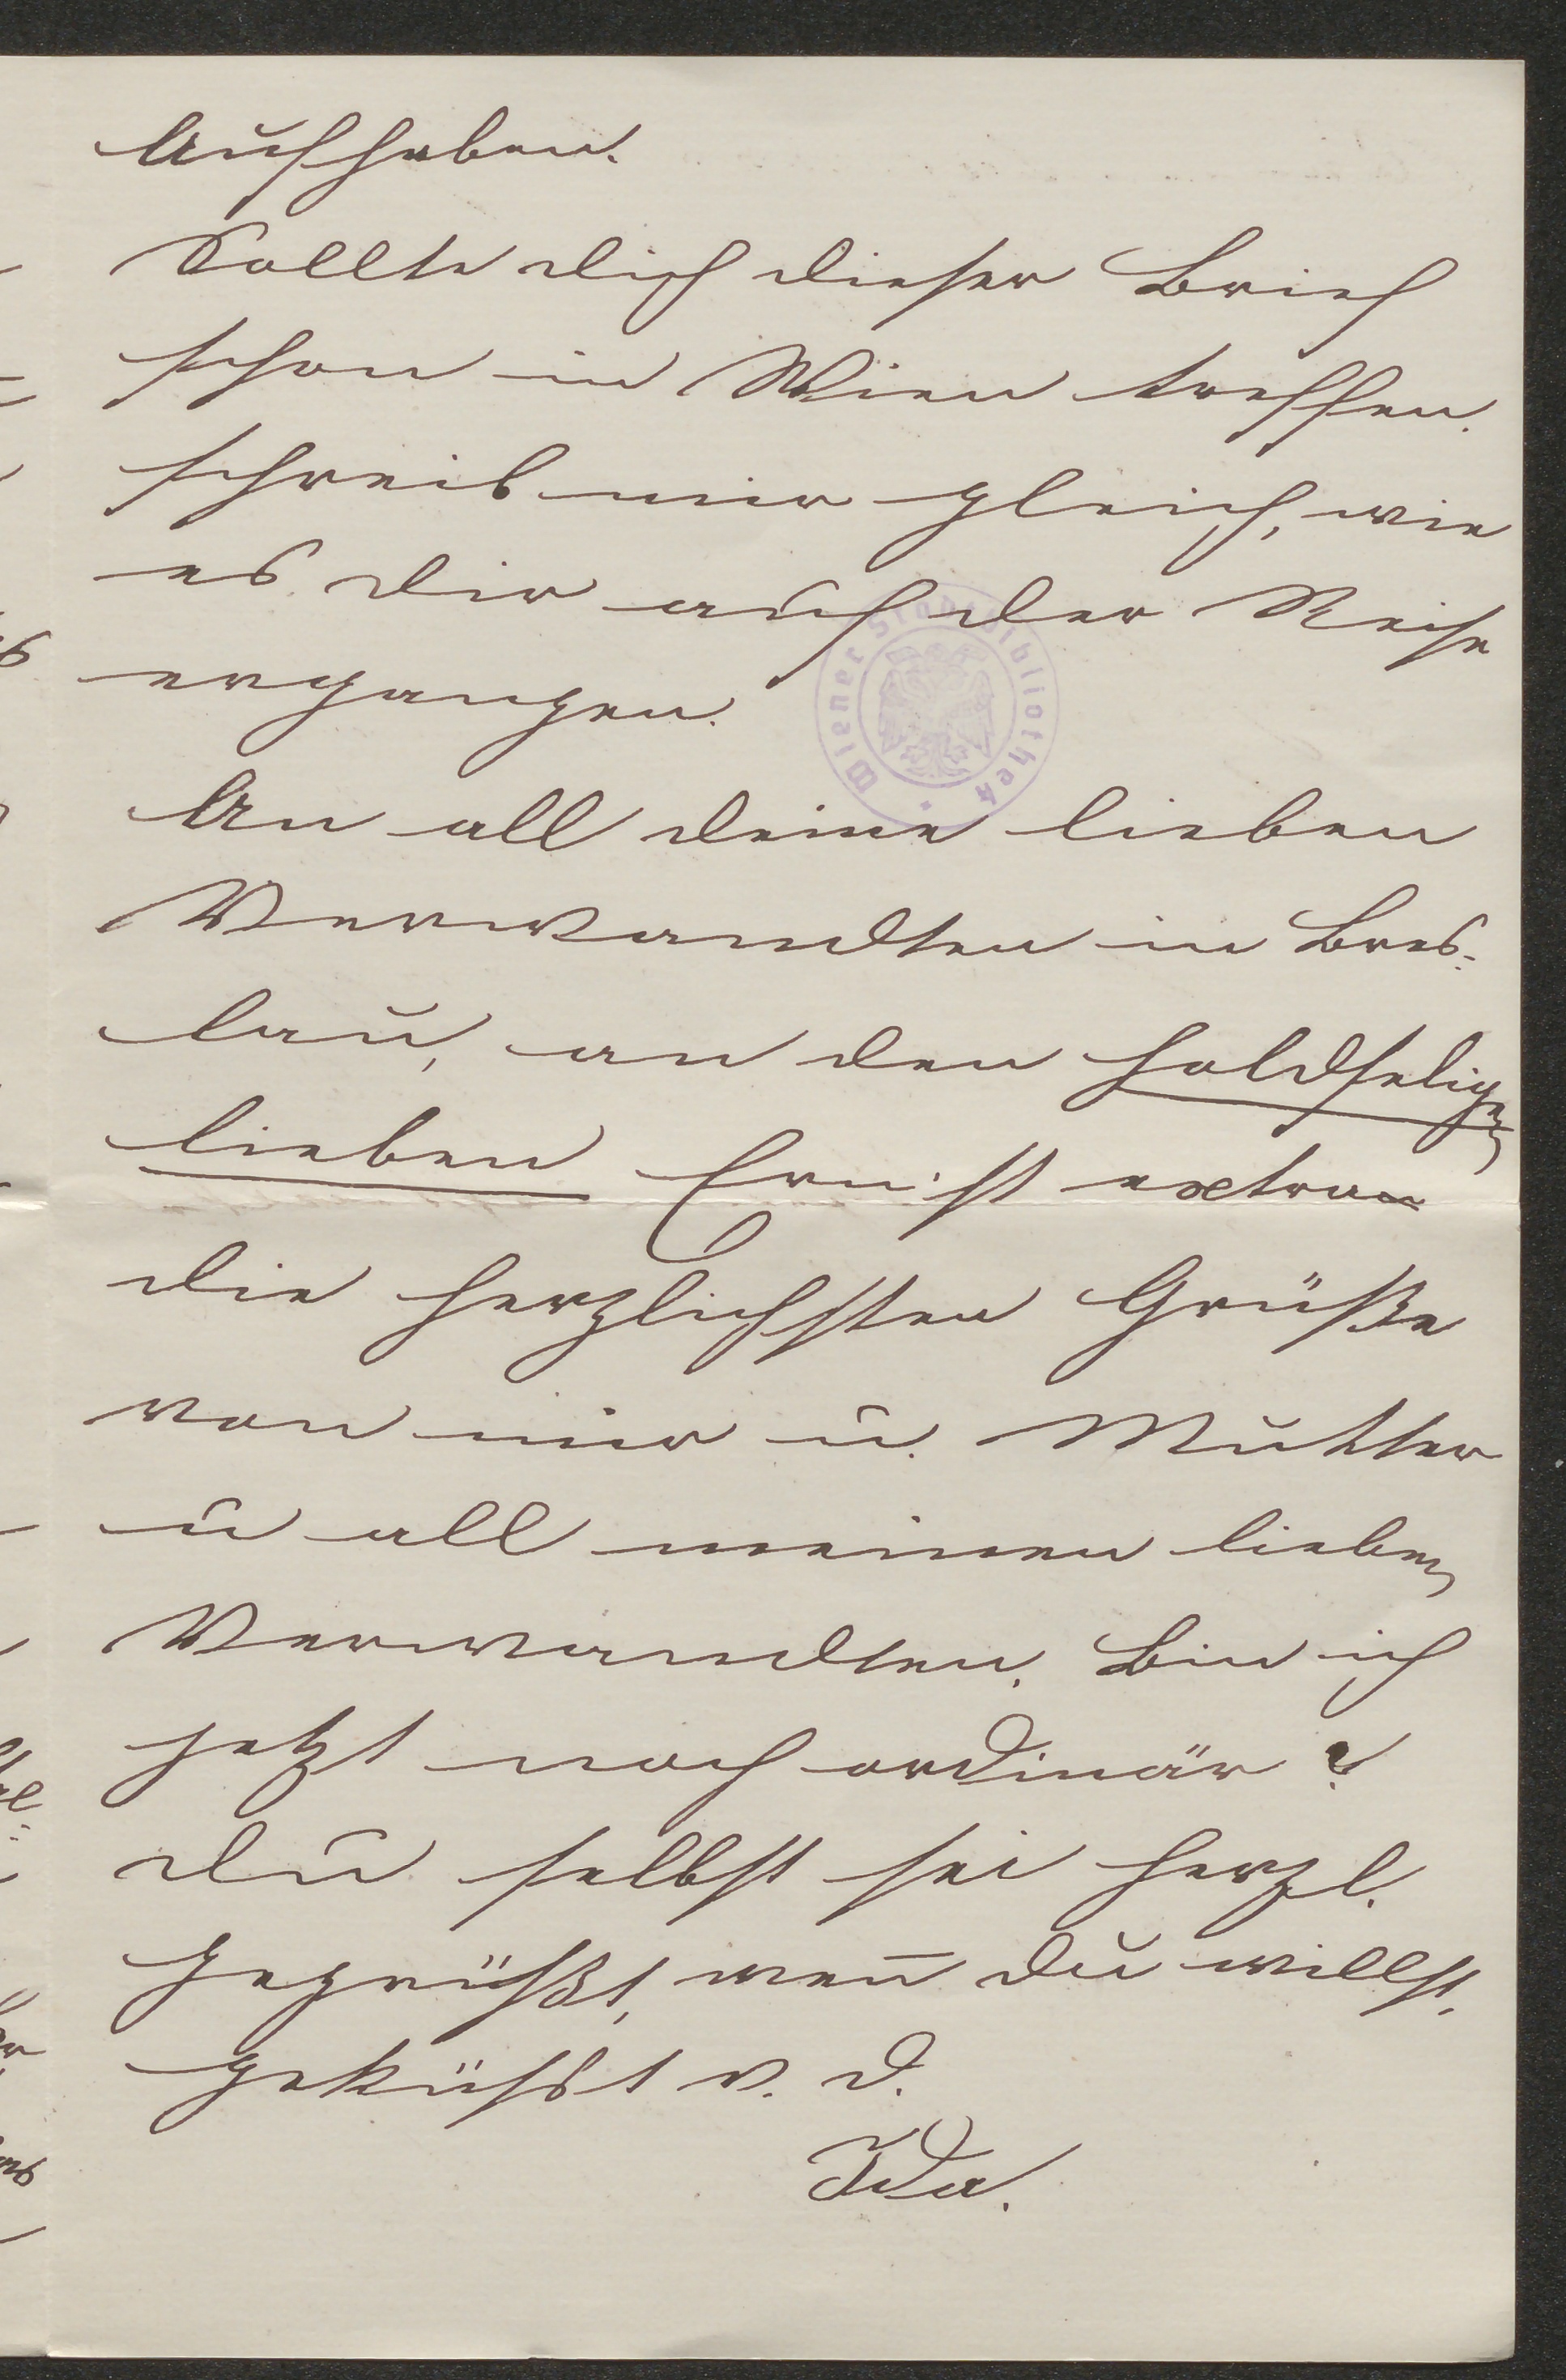 Aufhaben.
Sollte dich dieser Brief
schon in Wien treffen.
schreib mir gleich, wie
es dir auf der Reise
ergangen.
Wiener Stadtbibliothek
An all deine lieben
Verwandten in Bres-
lau, an den holdseligen
lieben Ernst extra
die herzlichsten Grüße
von mir u. Mutter
u all meinen lieben
Verwandten. Bin ich
jetzt noch ordinär?
du selbst sei herzl.
gegrüßt, wen̄ du willst.
geküßt v. d.
Ida.